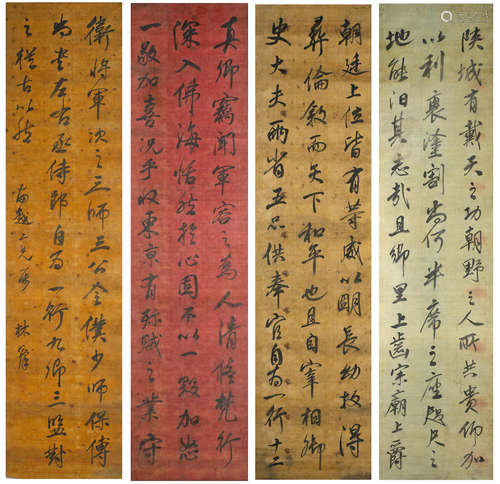 陝城有戴天之功朝野之人所共貴仰加
以利衰塗割尚何半席之座咫尺之
地能汨其志哉且鄉里上齒宗廟上爵
朝廷上位皆有等威以明長幼故得
彝倫敘而天下和平也且自宰相御
史大夫兩省五品供奉官自為一行十二
真卿竊聞軍容之為人清修梵行
深入佛海恬然於心固不以一毀加怒
一敬加喜況乎收東京有殄賊之業守
衛將軍次之三師三公令僕少師保傅
尚書左右丞侍郎自為一行九卿三監對
之從古以然